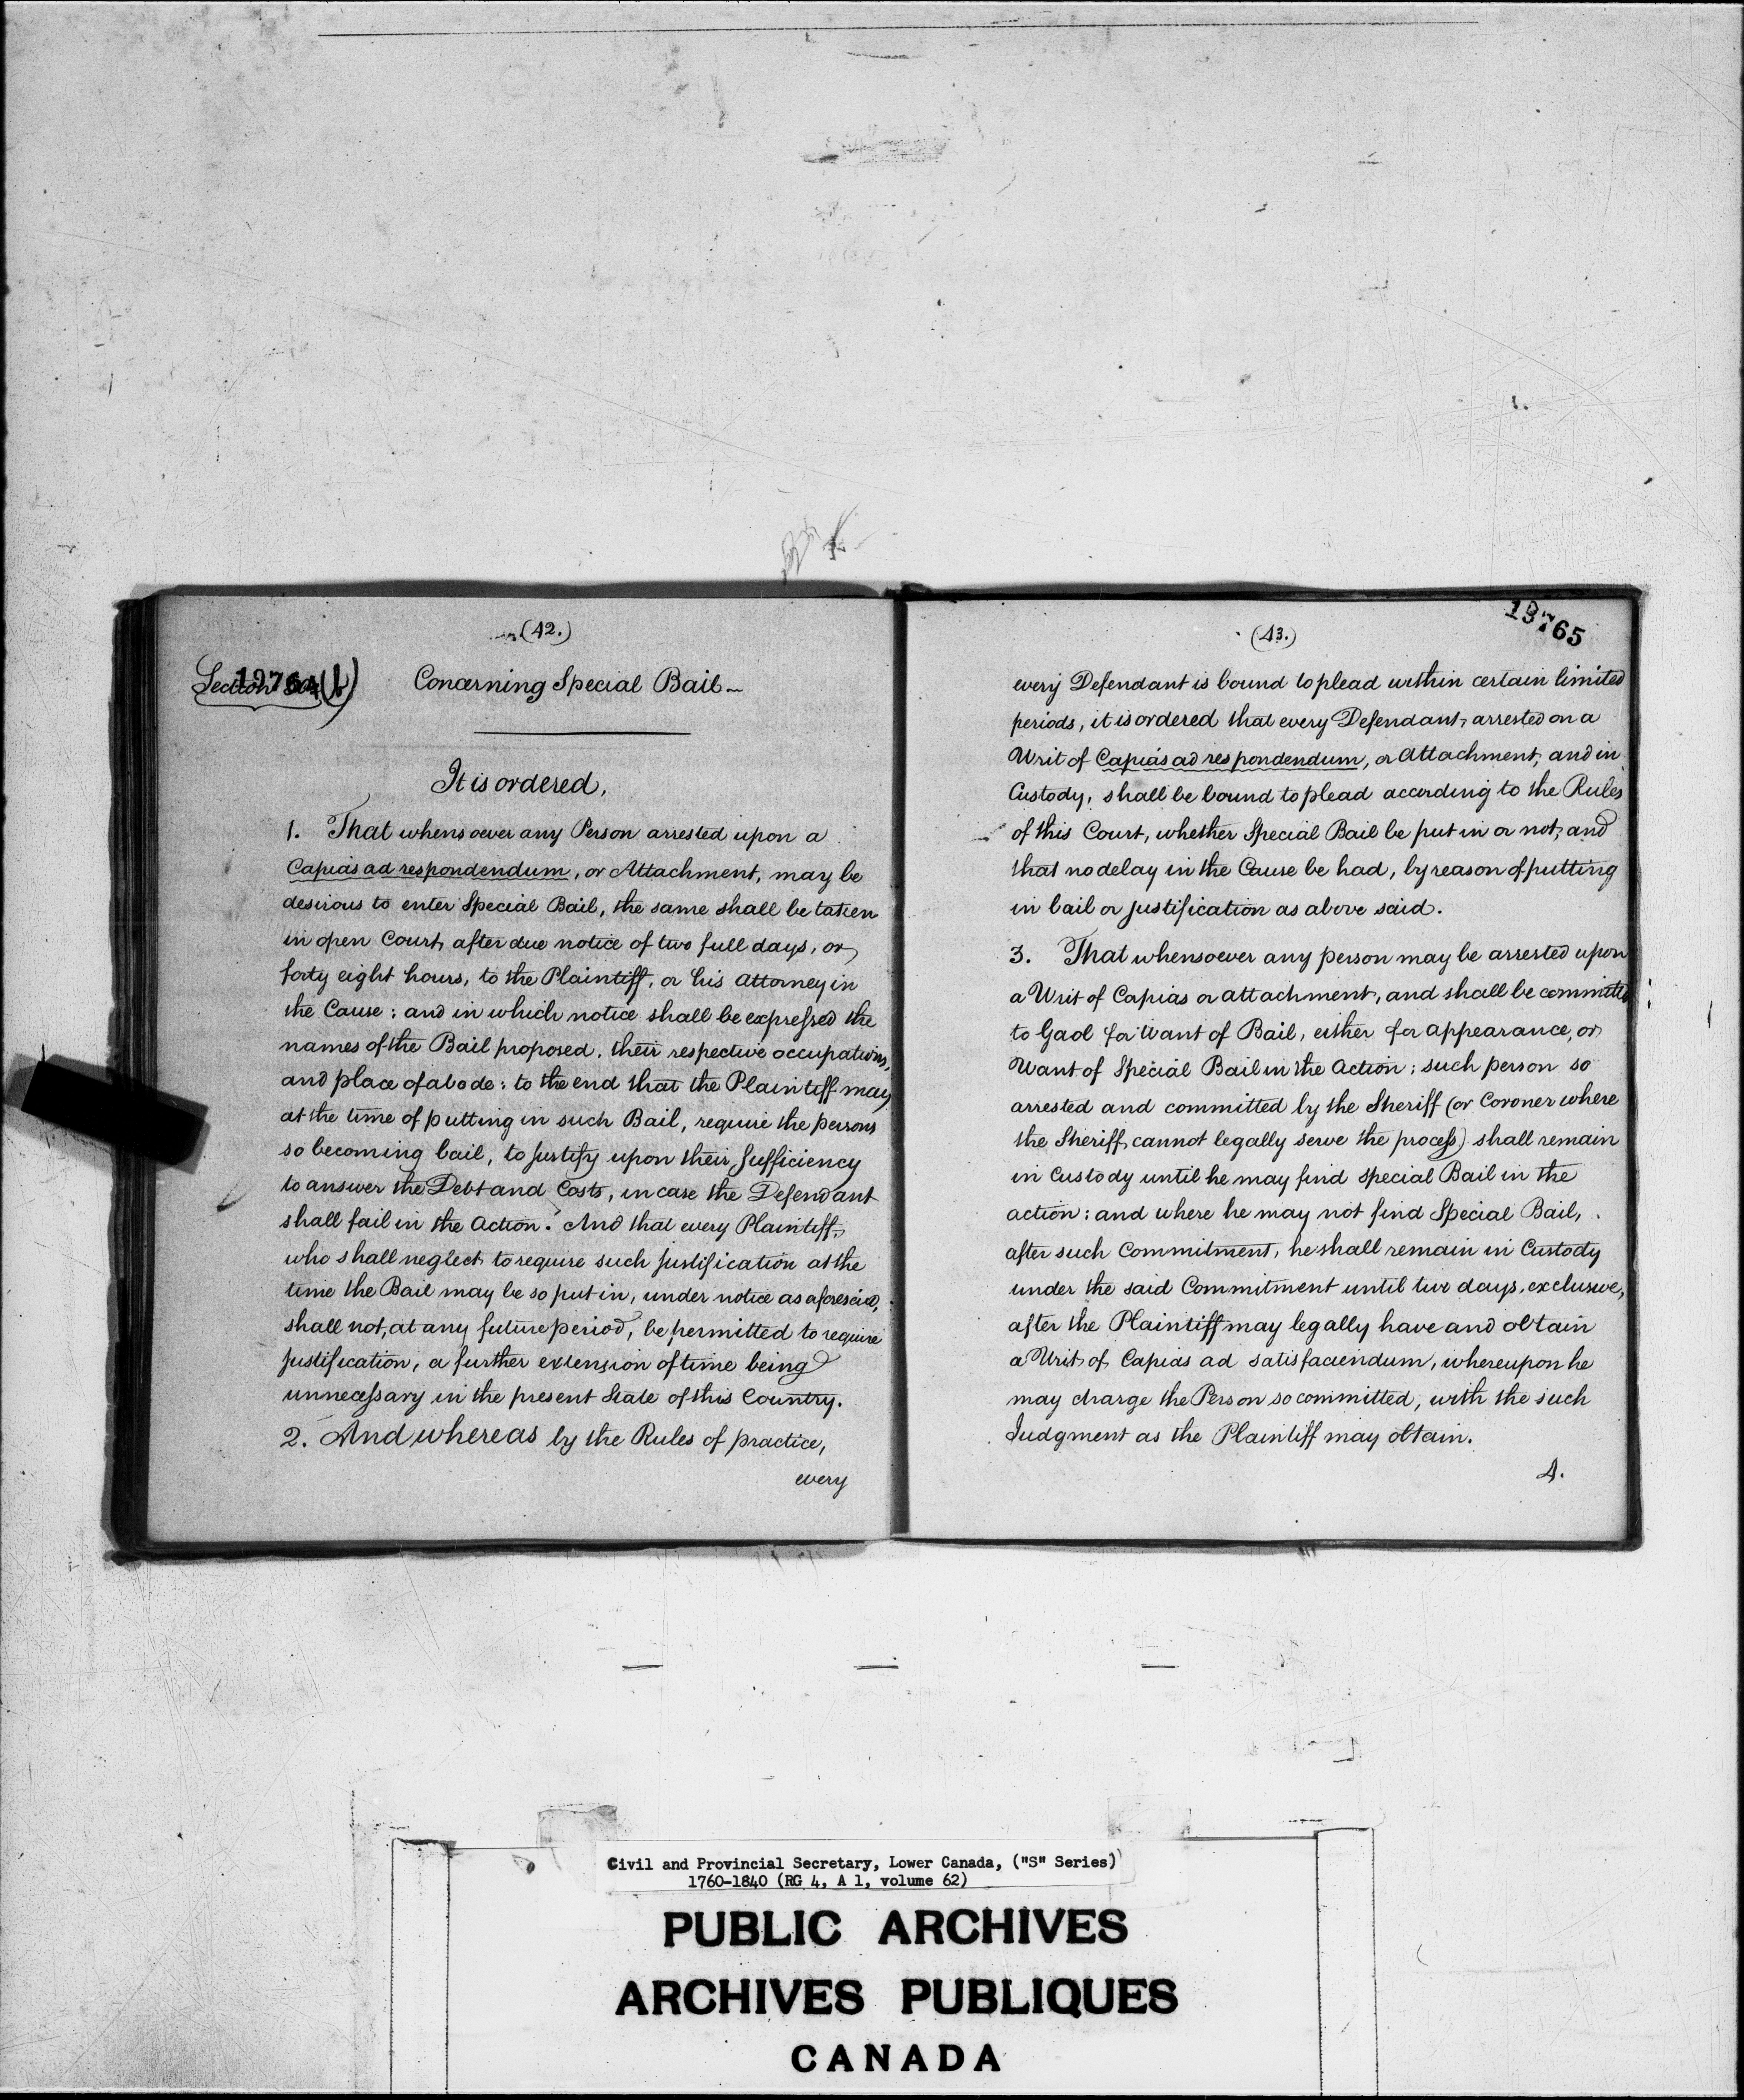 (42.)
Section 19764(b)
Concerning Special Bail
It is ordered,
1. That whensoever any Person arrested upon a
Capias ad respondendum, or Attachment, may be
desirous to enter Special Bail, the same shall be taken
in open Court, after due notice of two full days, or
forty eight hours, to the Plaintiff, or his Attorney in
the Cause; and in which notice shall be expressed the
names of the Bail proposed, their respective occupations,
and place of abode; to the end that the Plaintiff may
at the time of putting in such Bail, require the persons
so becoming bail, to justify upon their Sufficiency
to answer the Debt and Costs, in case the Defendant
shall fail in the Action. And that every Plaintiff,
who shall neglect to require such justification at the
time the Bail may be so put in, under notice as aforesaid,
shall not, at any future period, be permitted to require
justification, a further extension of time being
unnecessary in the present State of this Country.
2. And whereas by the Rules of practice,
every
(43.)
19765
every Defendant is bound to plead within certain limited
periods, it is ordered that every Defendant, arrested on a
Writ of Capias ad respondendum, or Attachment, and in
Custody, shall be bound to plead according to the Rules
of this Court, whether Special Bail be put in or not, and
that no delay in the Cause be had, by reason of putting
in bail or justification as above said.
3. That whensoever any person may be arrested upon
a Writ of Capias or attachment, and shall be committed
to Gaol for Want of Bail, either for appearance, or
Want of Special Bail in the Action; such person so
arrested and committed by the Sheriff (or Coroner where
the Sheriff cannot legally serve the process) shall remain
in Custody until he may find Special Bail in the
action; and where he may not find Special Bail,
after such Commitment, he shall remain in Custody
under the said Commitment until two days, exclusive,
after the Plaintiff may legally have and obtain
a Writ of Capias ad satisfaciendum, whereupon he
may charge the Person so committed, with the such
Judgment as the Plaintiff may obtain.
4.
Civil and Provincial Secretary, Lower Canada, ("S" Series)
1760-1840 (RG 4, A 1, volume 62)
PUBLIC ARCHIVES
ARCHIVES PUBLIQUES
CANADA